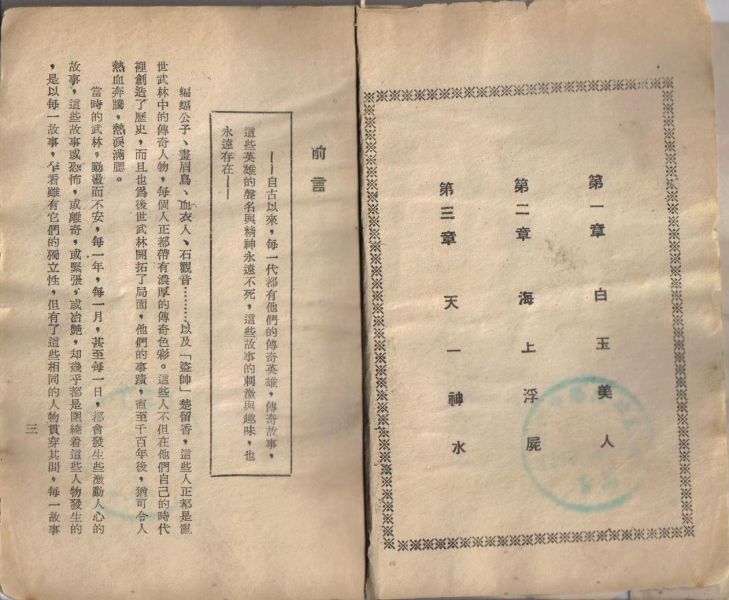 第一章 白玉美人
第二章 海上浮屍
第三章 天一神水
前言
——自古以來，每一代都有他們的傳奇英雄，傳奇故事，
這些英雄的聲名與精神永遠不死，這些故事的刺激與趣味，也
永遠存在——
蝙蝠公子、畫眉鳥、血衣人、石觀音………以及「盜帥」楚留香，這些人正都是亂
世武林中的傳奇人物，每個人正都帶有濃厚的傳奇色彩。這些人不但在他們自己的時代
裡創造了歷史，而且也爲後世武林開拓了局面，他們的事蹟，直至千百年後，猶可令人
熱血奔騰，熱淚滿腮。
當時的武林，動盪而不安，每一年，每一月，甚至每一日，都會發生些激動人心的
故事，這些故事或恐怖，或離奇，或緊張，或冶艷，却幾乎都是圍繞着這些人物發生的
，是以每一故事，乍看雖有它們的獨立性，但有了這些相同的人物貫穿其間，每一故事
三